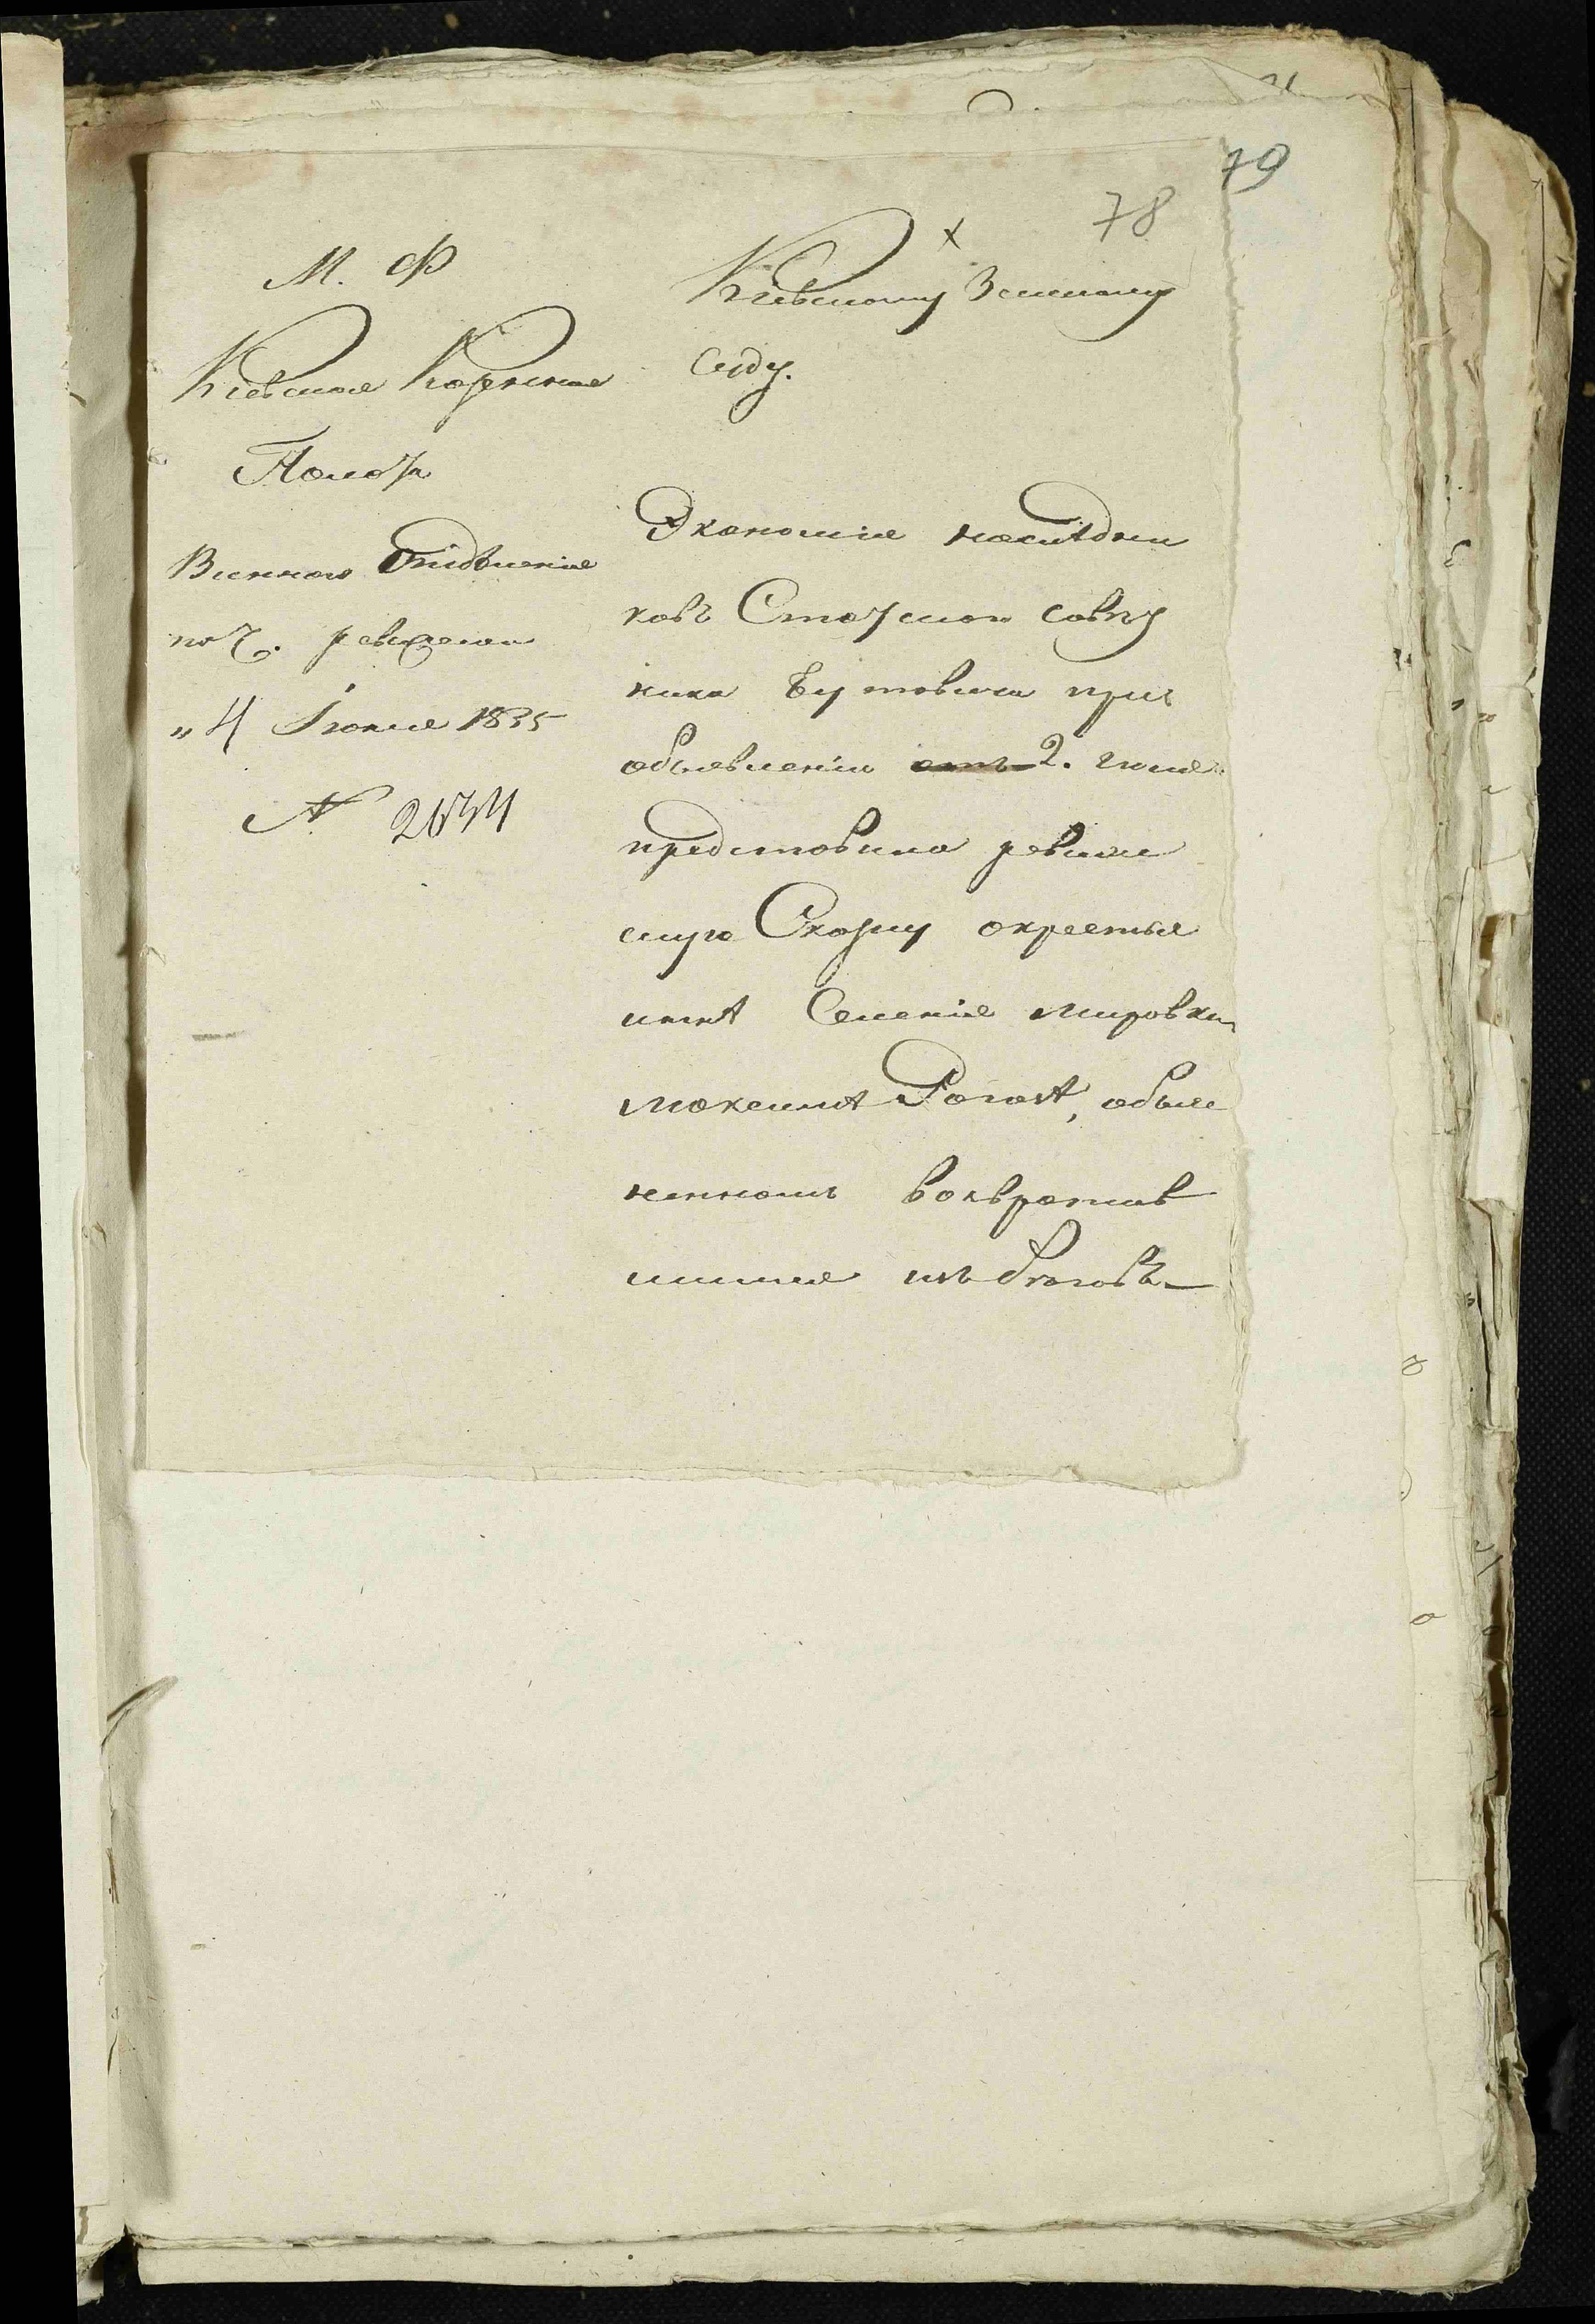 79
78
М. Ф
Кіевская Казенная
Палата
Виннаго Отдѣленія
по Ч. ревизская
"4 Іюня 1835
№ 2634
Кіевскому Земскому
Суду.
Экономія наслѣдни
ковъ Статскаго совѣт
ника Бутовича при
объявленіи отъ 2. іюня
представила ревиж
скую Сказку о крестья
нинѣ Селенія Мировки
Максимѣ Рогозѣ, объяв
ленномъ возвратив
шимся изъ бѣговъ